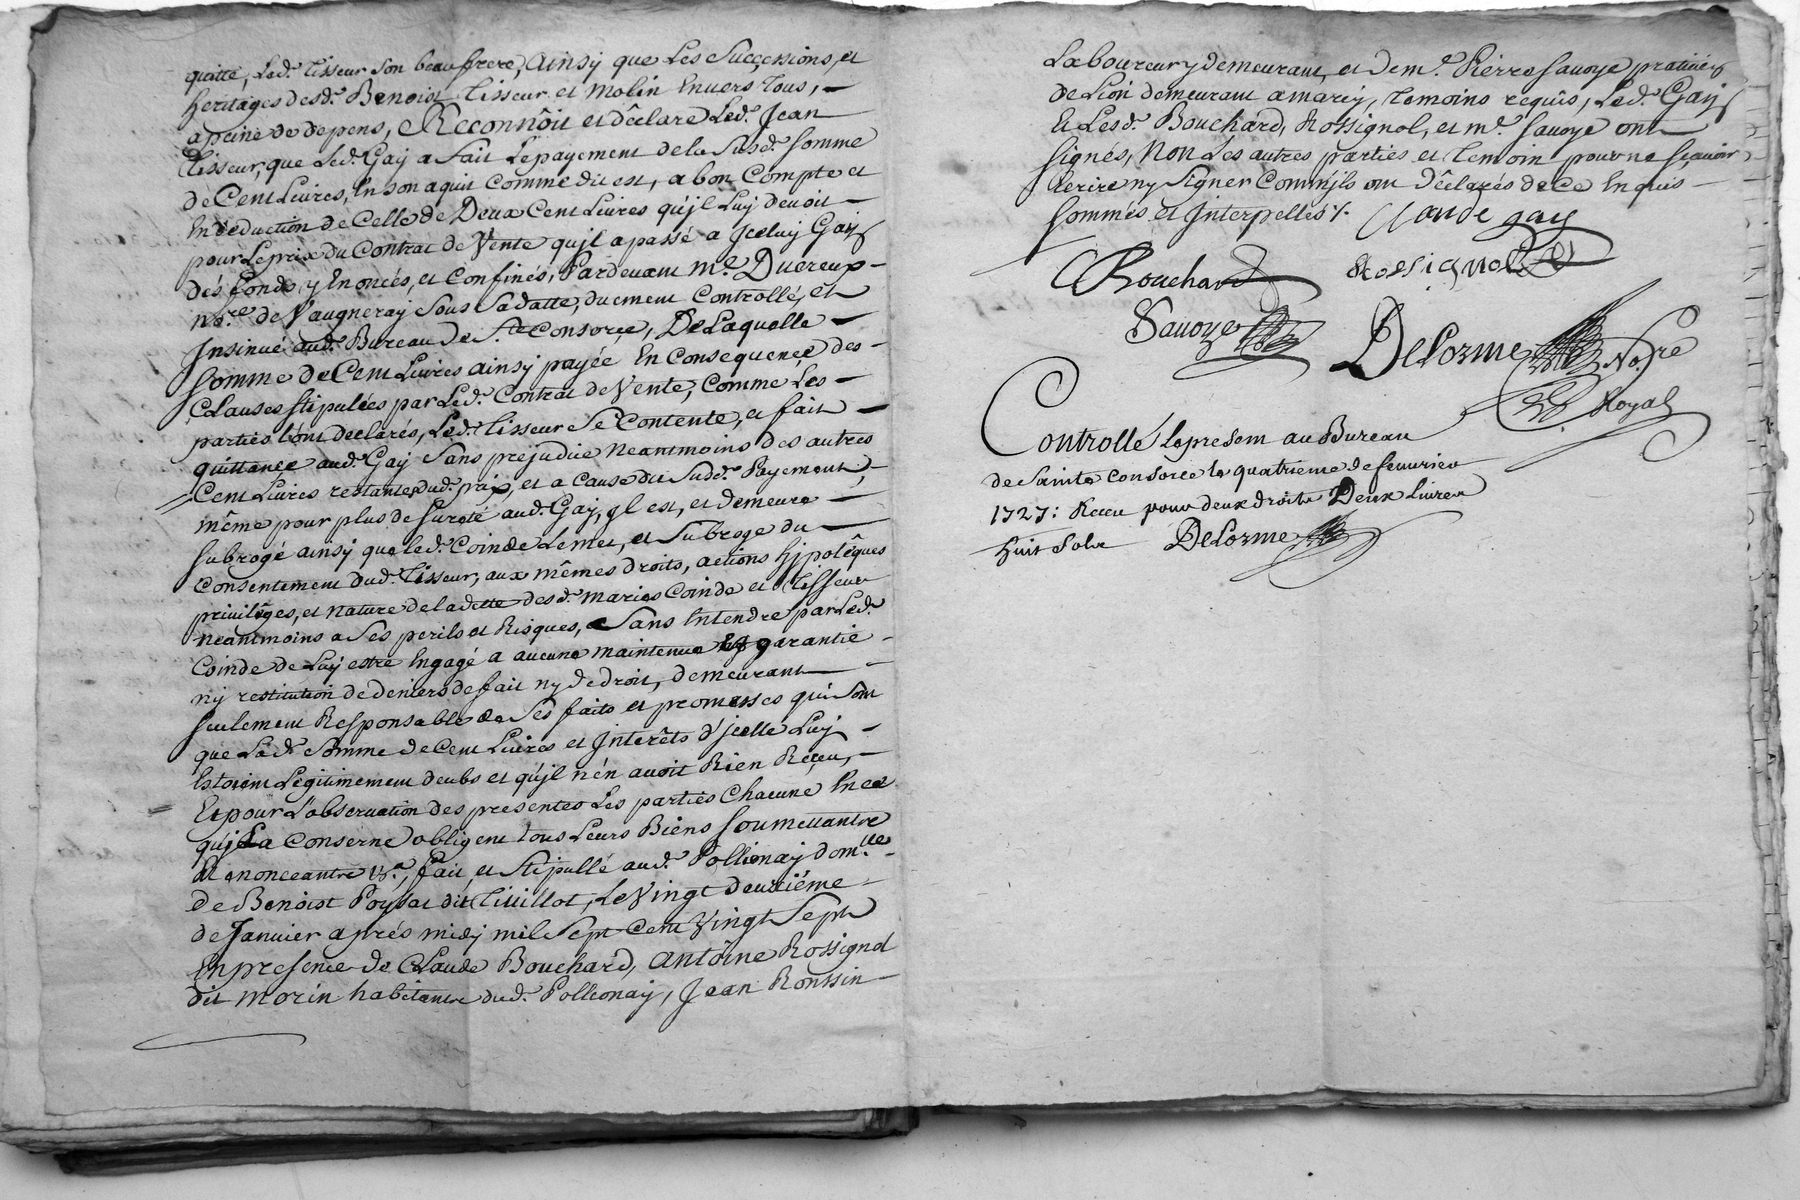 quitte, Led. Tisseur son beaufrere, Ainsy que Les Successions, et
heritages desd. Benoist Tisseur et Molin Envers tous, —
a peine de depens, Reconnôit et déclare Led. Jean
Tisseur, que Led. Gaÿ a fait Le payement de la Susd. somme
de Cent Livres, En son aquit comme dit est, a bon Compte et
En déduction de Celle de Deux Cent Livres qu'jl Luy devoit —
pour Le prix du Contrat de Vente qu'jl a passé a Jceluy Gaÿ
dés fonds y Enoncés, et Confinés, Pardevant Me. Duereux —
Nore. de Vaugneray Sous Sa datte, duement Controllé, et
Jnsinué aud. Bureau de Ste Consorce, De Laquelle —
Somme de Cent Livres ainsy payée En Consequence des —
Clauses Stipulées par Led. Contrat de Vente, Comme Les —
parties L'ont declarés, Led. Tisseur Se Contente, et fait —
quittance aud. Gaÿ Sans prejudice Neantmoins des autres
Cent Livres restantes dud. prix, et a Cause du Susd. Payement,
même pour plus de Sureté aud. Gaÿ, jl est, et demeure —
Subrogé ainsy que led. Coinde Le met, et Subroge du —
Consentement dud. Tisseur, aux mêmes droits, actions hÿpotêques
privilêges, et Nature de la dette desd. maries Coinde et Tisseur
Neantmoins a Ses perils et Risques, Sans Entendre par Led.
Coinde de Luÿ estre Engagé a aucune maintenue garantie —
nÿ restitution de deniers de fait nÿ de droit, demeurant —
seulement Responsable de Ses faits et promesses qui Sont
que Lad. Somme de Cent Livres et Jnterêts d'jcelle Luÿ —
Estoient Legitimement deubs et qu'jl n'én avoit Rien Reçeu, —
Et pour L'observation des presentes Les parties Chacune En ce
qu'jl La Conserne obligent tous Leurs Biens Soumettantes
Renonceantes &c., fait, et Stipullé aud. Pollionaÿ domlle
de Benoist Poysat dit Tivillot, Le Vingt deuxiéme —
de Janvier aprés midÿ mil Sept Cent Vingt Sept
En presence de Claude Bouchard, Antôine Rossignol
dit Morin habitants dud. Pollionaÿ, Jean Ronssin —
Laboureur y demeurant, et de me. Pierre Savoye praticien
de Lion demeurant a marcÿ, Temoins requis, Led. Gaÿ
Et Lesd. Bouchard, Rossignol, et me. Savoye ont
Signés, Non Les autres parties et temoin pour ne sçavoir
Ecrire ny Signer Comm'jls ont Déclarés de Ce Enquis —
Sommés et Jnterpellés /. Claude gay
Bouchard Rossignol
Savoye Delorme No.re
Royal
Controllé le present au Bureau
de Sainte Consorce le quatrieme de fevvrier
1727: Receu pour deux droits Deux Livres
huit Sols Delorme